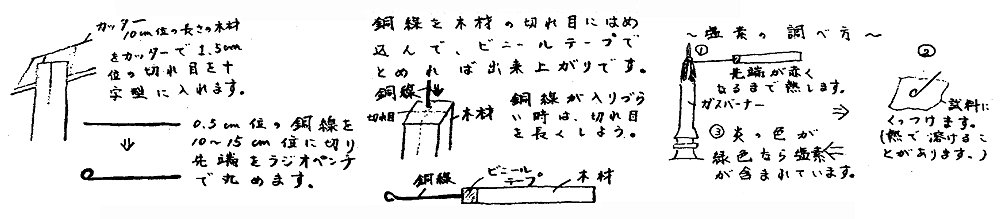 カッター
10cm位の長さの木材
をカッターで1.5cm
位の切れ目を十
字型に入れます。
0.5cm位の銅線を
10〜15cm位に切り
先端をラジオペンチ
で丸めます。
銅線を木材の切れ目にはめ
込んで、ビニールテープで
とめれば出来上がりです。
銅線
切れ目
木材
銅線が入りづら
い時は、切れ目
を長くしよう。
銅線
ビニール
テープ
木材
〜塩素の調べ方〜
①
先端が赤く
なるまで熱します。
ガスバーナー
②
試料に
くっつけます。
(熱で溶けるこ
とがあります。)
③炎の色が
緑色なら塩素
が含まれています。